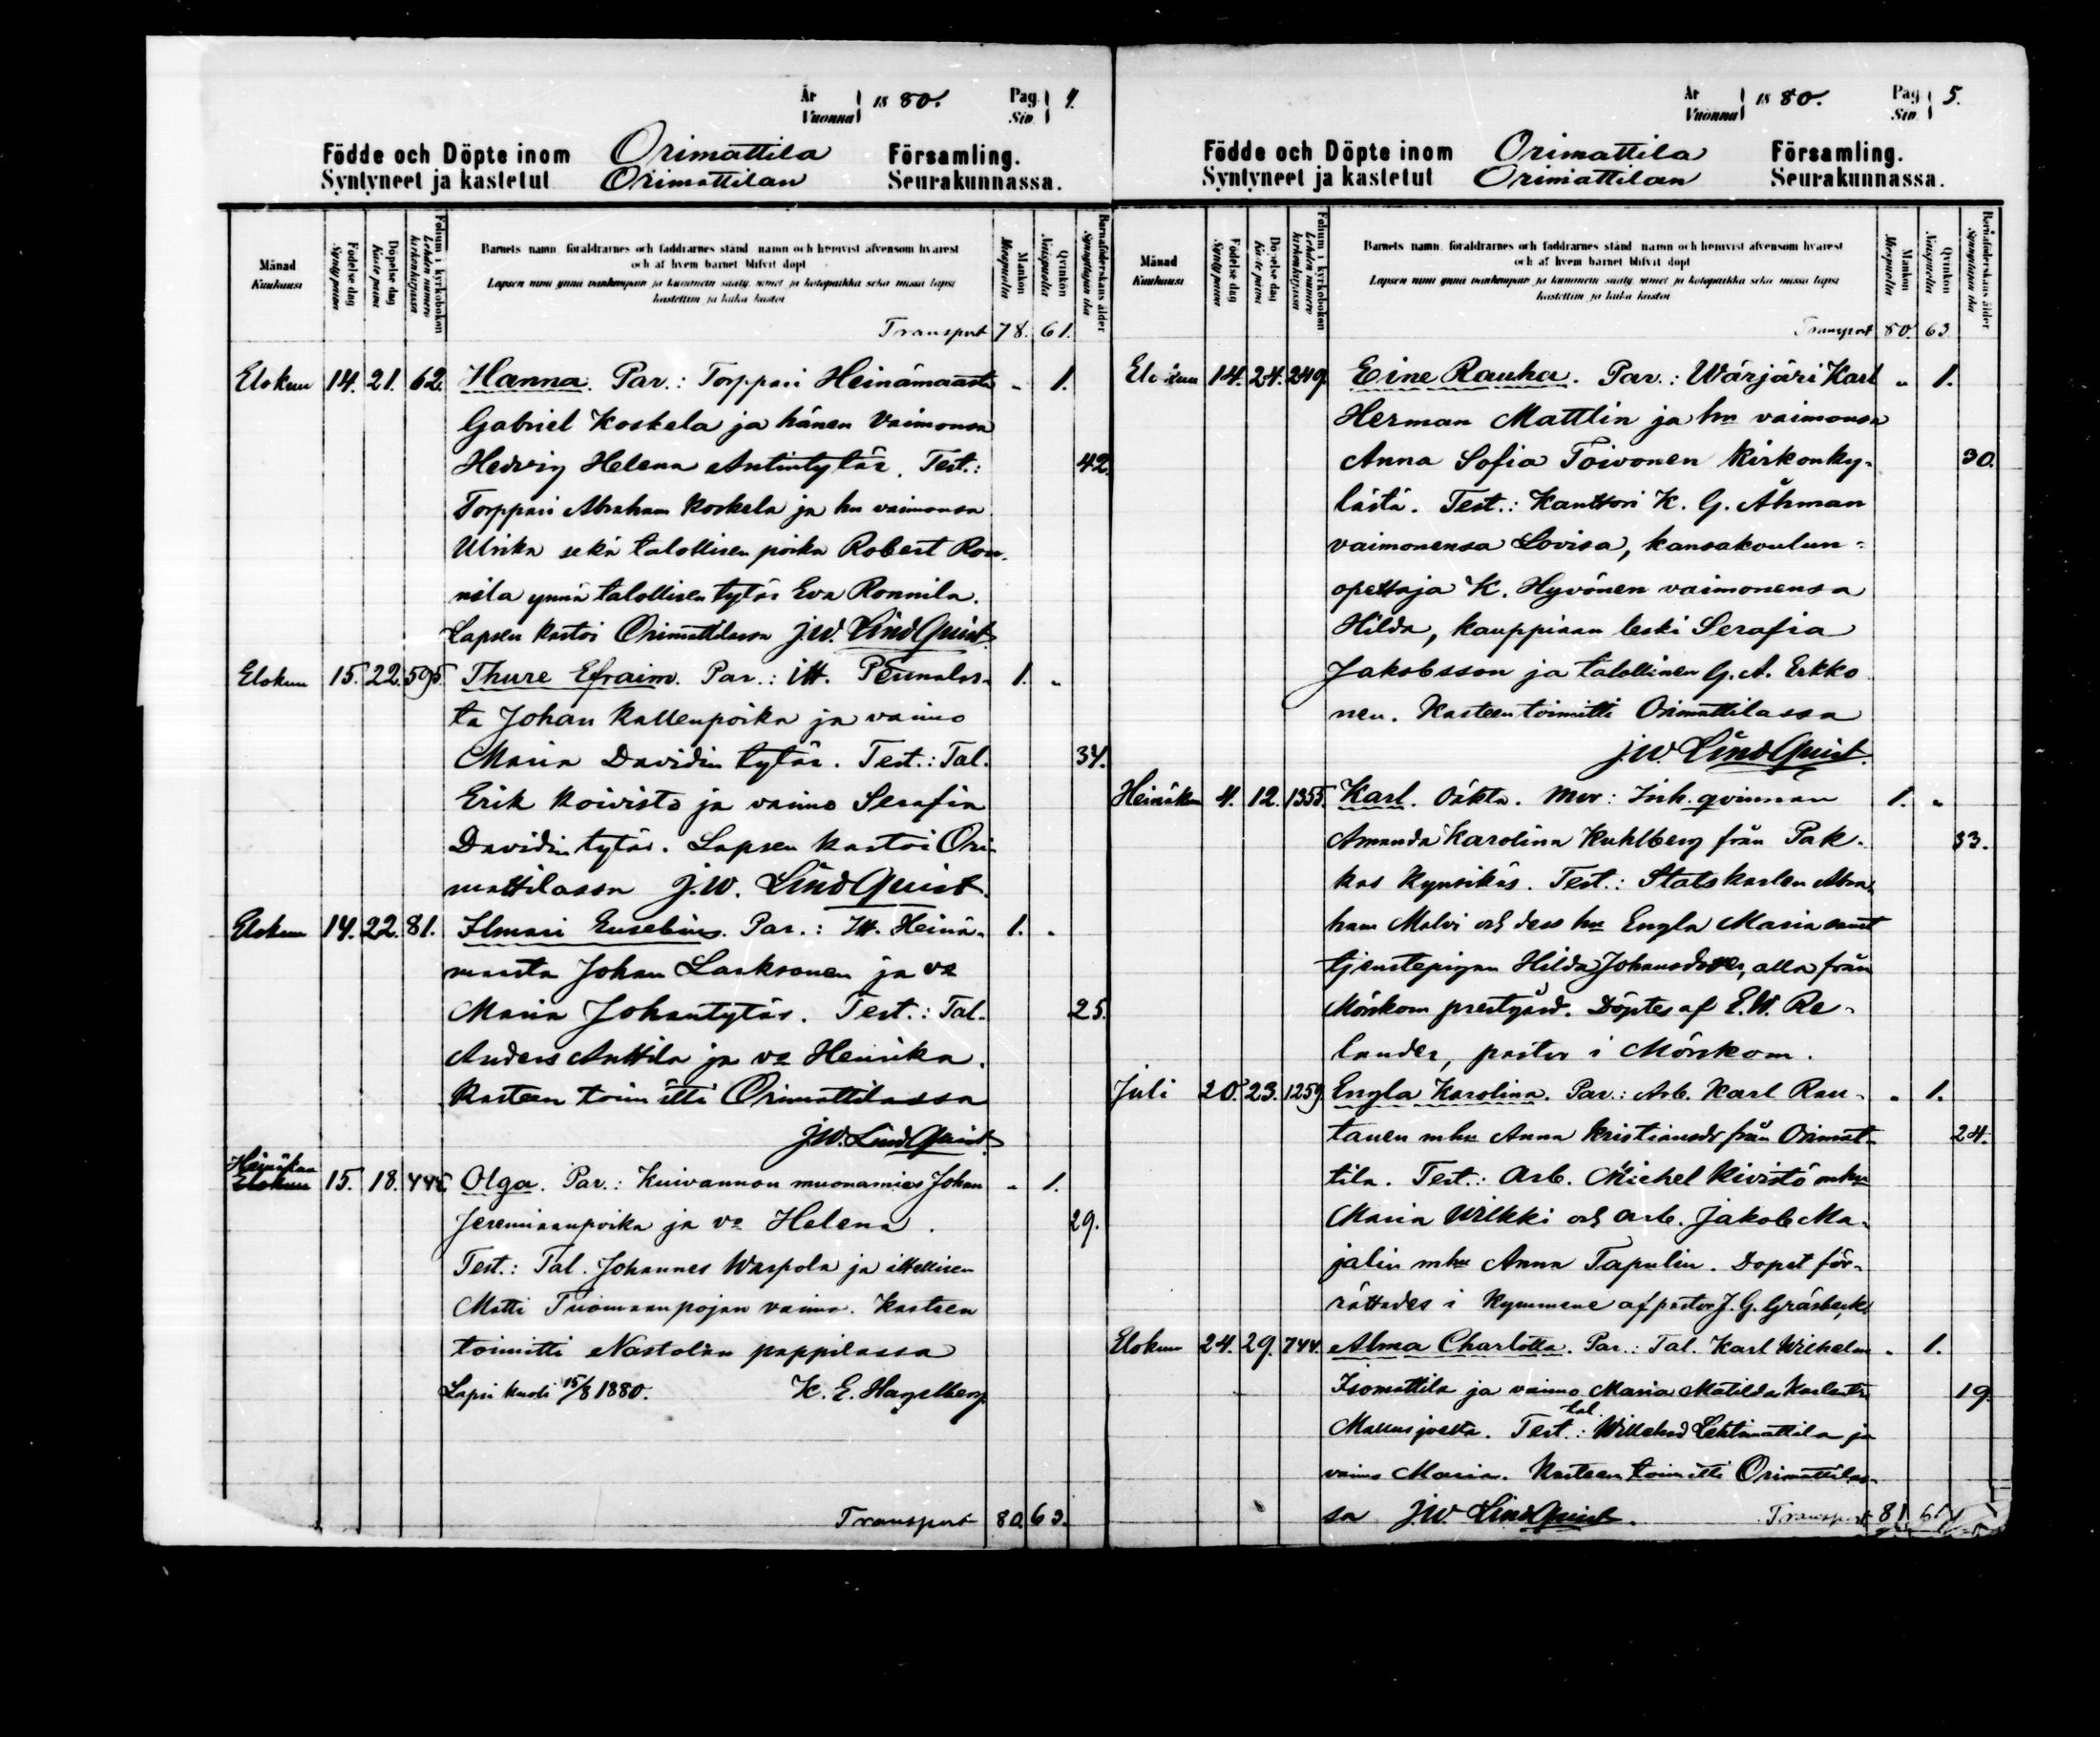 År 1880. Pag. 4.
Vuonna Siv.
Födde och Döpte inom Orimattila Församling.
Syntyneet ja kastetut Orimattilan Seurakunnassa.
Månad Födelse dag Döpelse dag Folium i kyrkoboken Barnets namn, föräldrarnes och faddrarnes stånd, namn och hemvist äfvensom hvarest Mankön Qvinkön Barnaföderskans ålder
Kuukausi Syntypäivä Kastepäivä Lehden numero kirkonkirjassa och af hvem barnet blifvit döpt Miespuolia Naispuolia Synnyttäjän ikä
Lapsen nimi ynnä vanhempain ja kummein sääty, nimet ja kotopaikka sekä missä lapsi
kastettiin ja kuka kastoi
Transport 78. 61.
Elokuu 14. 21. 62. Hanna. Par.: Torppari Heinämaasta „ 1.
Gabriel Koskela ja hänen Vaimonsa
Hedvig Helena Antintytär. Test.: 42.
Torppari Abraham Koskela ja hn vaimonsa
Ulrika sekä talollisen poika Robert Ron-
nila ynnä talollisen tytär Eva Ronnila.
Lapsen kastoi Orimattilassa J.W. LindQuist.
Elokuu 15. 22. 595. Thure Efraim. Par.: itt. Pennalas- 1. „
ta Johan Kallenpoika ja vaimo
Maria Davidin tytär. Test.: Tal. 34.
Erik Koivisto ja vaimo Serafia
Davidin tytär. Lapsen kastoi Ori-
mattilassa J.W. LindQuist.
Elokuu 14. 22. 81. Ilmari Eusebius. Par.: Itt. Heinä- 1. „
maasta Johan Laaksonen ja va
Maria Johantytär. Test.: Tal. 25.
Anders Anttila ja va Henrika.
Kasteen toimitti Orimattilassa
J.W. LindQuist.
Heinäkuu
Elokuu 15. 18. Olga. Par.: Kuivannon muonamies Johan „ 1.
Jeremiaanpoika ja va Helena. 29.
Test.: Tal. Johannes Warpola ja itellisen
Matti Tuomaanpojan vaimo. Kasteen
toimitti Nastolan pappilassa
Lapsi kuoli 15/8 1880. K. E. Hagelberg.
Transport 80. 63.
År 1880. Pag. 5.
Vuonna Siv.
Födde och Döpte inom Orimattila Församling.
Syntyneet ja kastetut Orimattilan Seurakunnassa.
Månad Födelse dag Döpelse dag Folium i kyrkoboken Barnets namn, föräldrarnes och faddrarnes stånd, namn och hemvist äfvensom hvarest Mankön Qvinkön Barnaföderskans ålder
Kuukausi Syntypäivä Kastepäivä Lehden numero kirkonkirjassa och af hvem barnet blifvit döpt Miespuolia Naispuolia Synnyttäjän ikä
Lapsen nimi ynnä vanhempain ja kummein sääty, nimet ja kotopaikka sekä missä lapsi
kastettiin ja kuka kastoi
Transport 80. 63.
Elokuu 14. 24. 249. Eine Rauha. Par.: Wärjäri Karl „ 1.
Herman Mattlin ja hn vaimonsa
Anna Sofia Toivonen Kirkonky- 30.
lästä. Test.: Kanttori K. G. Åhman
vaimonensa Lovisa, kansakoulun-
opettaja K. Hyvönen vaimonensa
Hilda, kauppiaan leski Serafia
Jakobsson ja talollinen G. A. Erkko
nen. Kasteen toimitti Orimattilassa
J.W. LindQuist.
Heinäkuu 4. 12. 1355. Karl. Oäkta. Mor: Inh. qvinnan 1. „
Amanda Karolina Kuhlberg från Pak- 33.
kas Kynsikäs. Test.: Statskarlen Abra-
ham Malvi och dess hu Engla Maria samt
tjenstepigan Hilda Johansdotter, alla från
Mörskom prestgård. Döptes af E.W. Re-
lander, pastor i Mörskom.
Juli 20. 23. 1259. Engla Karolina. Par.: Arb. Karl Rau- „ 1.
tanen mhu Anna Kristiansdr från Orimat- 24.
tila. Test.: Arb. Michel Kivistö mhu
Maria Wilkki och arb. Jakob Ma-
jalin mhu Anna Tapulin. Dopet för-
rättades i Kymmene af pastor J. G. Gräsbeck.
Elokuu 24. 29. 744. Alma Charlotta. Par.: Tal. Karl Wilhelm „ 1.
Isomattila ja vaimo Maria Matilda 19.
Mallusjoelta. Test.: tal. Willehad Lehtimattila ja
vaimo Maria. Kasteen toimitti Orimattilas-
sa J.W. LindQuist. Transport 81.